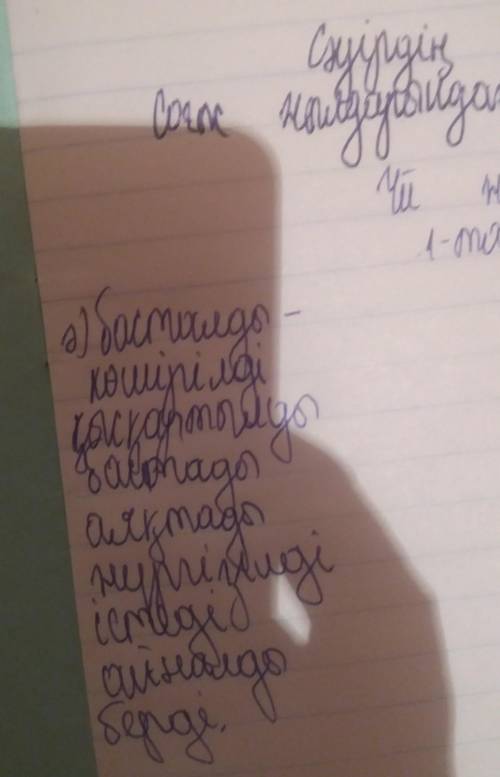 Сәуірдің
Соғыс жылдарындағ
Үй
1-та
ә) басталды -
көшірілді
қысқартылды
бастады
аяқтады
жүргізілді
істеді
айналды
берді.